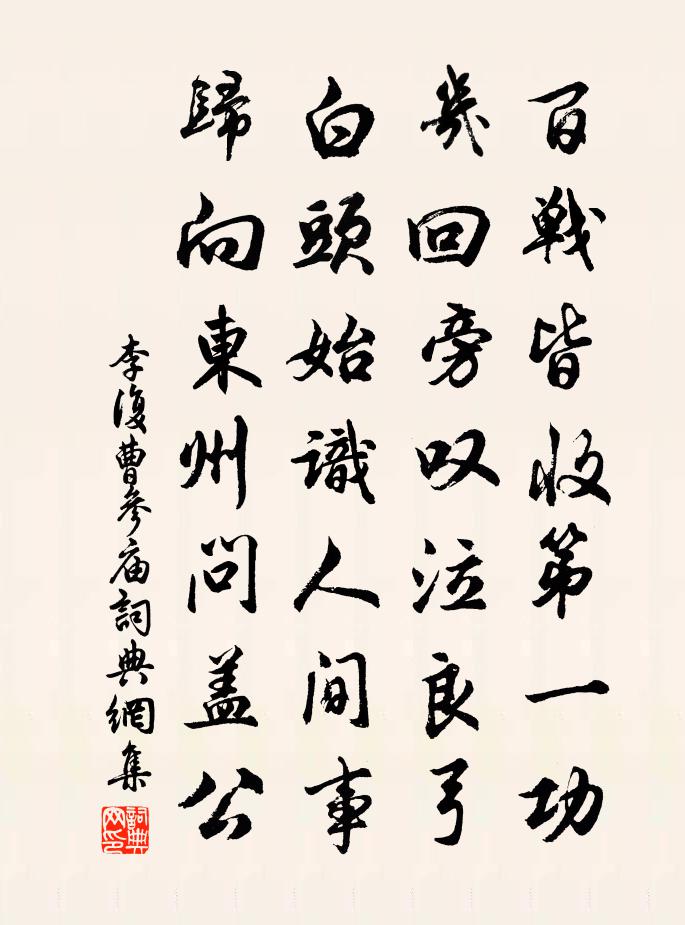 百戰皆收第一功
幾回旁叹泣良弓
白頭始識人間事
歸向東州問盖公
李復曹參庙詞典網集
詞典网印